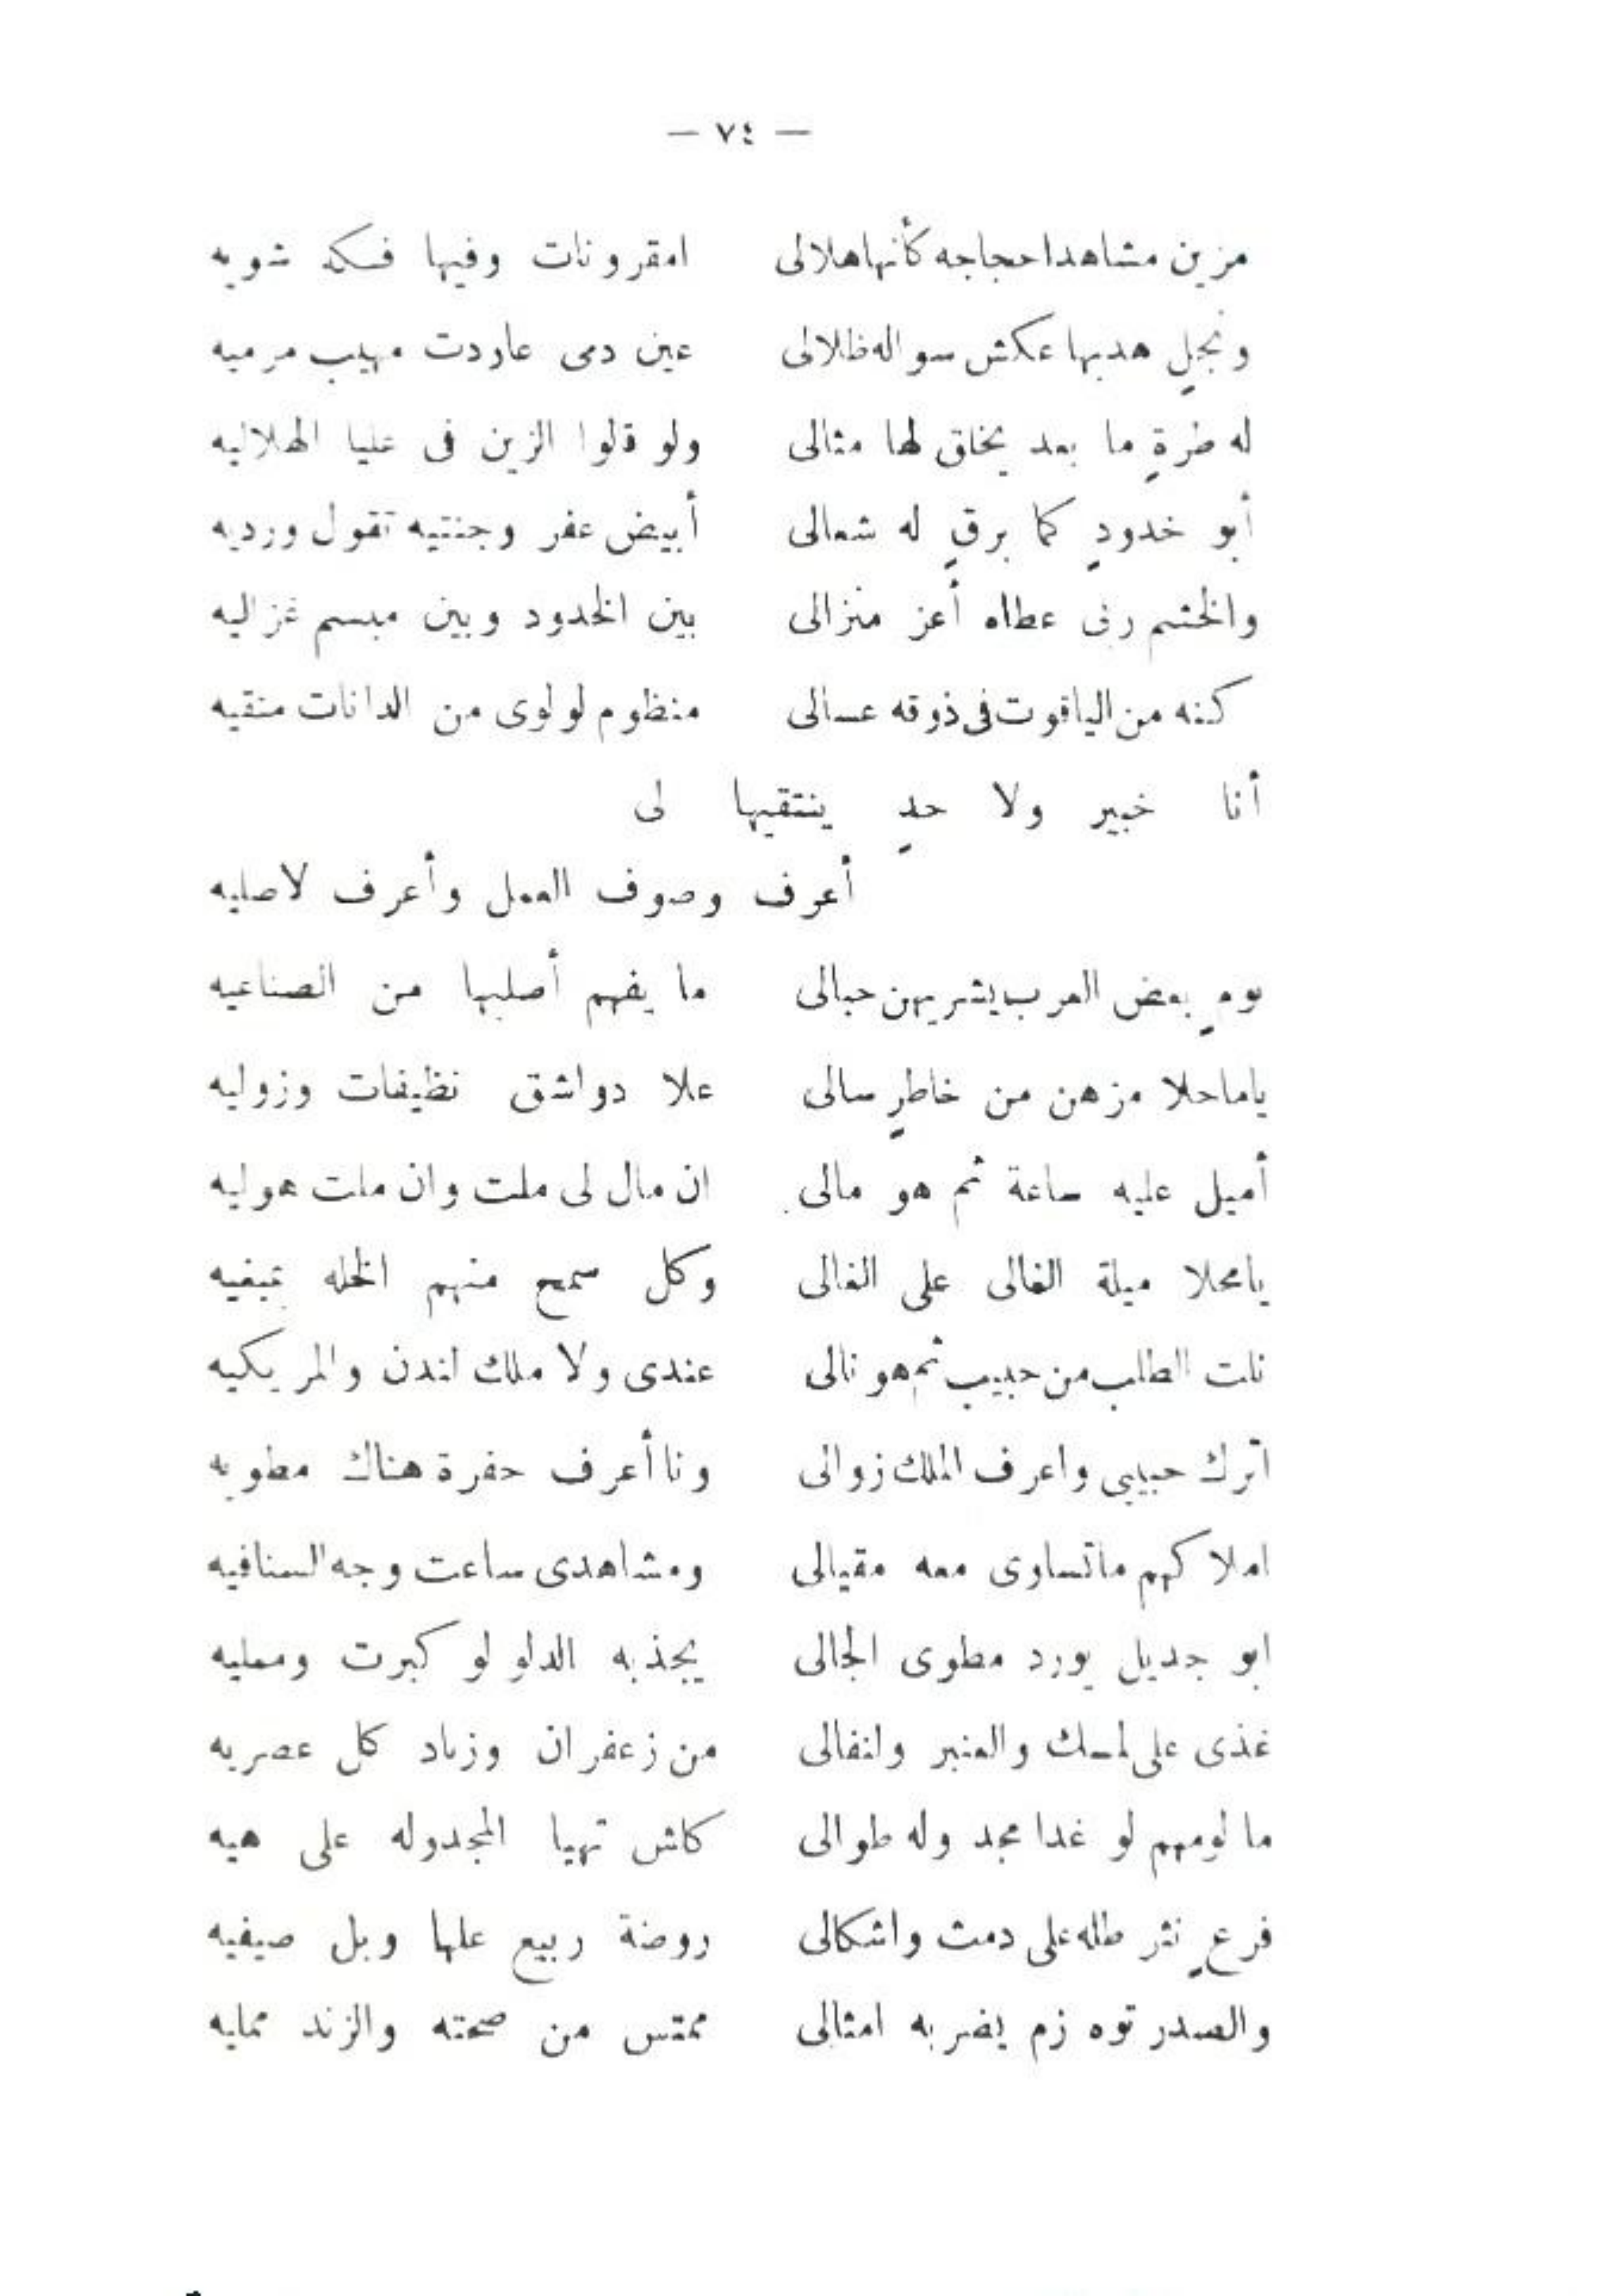 — ٧٤ —
مزين مشاهدا حجاجه كأنها هلالى امقرونات وفيها فسكه شويه
ونجلٍ هدبها عكش سواله ظلالى عين دمى عاردت مهيب مرميه
له طرةٍ ما بعد يخلق لها مثالى ولو قالوا الزين فى عليا الهلاليه
أبو خدودٍ كما برقٍ له شعالى أبيض عفر وجنتيه تقول ورديه
والخشم ربى عطاه أعز منزالى بين الخدود وبين مبسم غزاليه
كنه من الياقوت فى ذوقه عسالى منظوم لولوى من الدانات منقيه
أنا خبير ولا حدٍ ينتقيها لى
أعرف وصوف العمل وأعرف لاصليه
يومٍ بعض العرب يشريهن حبالى ما يفهم أصلها من الصناعيه
ياماحلا مزهن من خاطرٍ سالى علا دواشق نظيفات وزوليه
أميل عليه ساعة ثم هو مالى ان مال لى ملت وان ملت هوليه
يامحلا ميلة الغالى على الغالى وكل سمح منهم الخله عيفيه
نلت الطلب من حبيب ثم هو نالى عندى ولا ملك لندن والمريكيه
اترك حبيبى واعرف الملك زوالى ونا أعرف حفرة هناك مطويه
املاكهم ماتساوى معه مقيالى ومشاهدى ساعت وجه السنافيه
ابو جديل يورد مطوى الجالى يجذبه الدلو لو كبرت ومعليه
غذى على لمسك والعنبر وانفالى من زعفران وزباد كل عصريه
ما لومهم لو غدا مجد وله طوالى كاش تهيا المجدوله على هيه
فرعٍ نثر طله على دمث واشكالى روضة ربيع علها وبل صيفيه
والصدر توه زم يضربه امثالى ممتس من صحته والزند ممليه